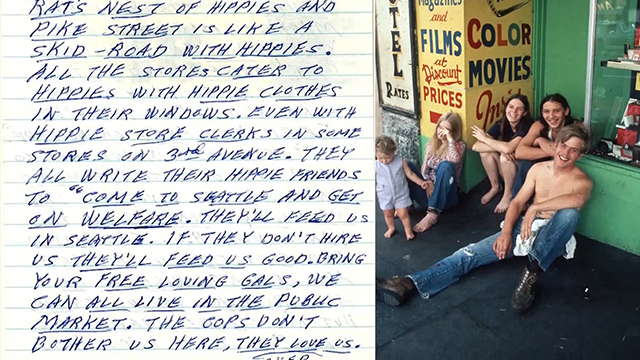 RAT'S NEST OF HIPPIES AND
PIKE STREET IS LIKE A
SKID-ROAD WITH HIPPIES.
ALL THE STORES CATER TO
HIPPIES WITH HIPPIE CLOTHES
IN THEIR WINDOWS. EVEN WITH
HIPPIE STORE CLERKS IN SOME
STORES ON 3rd AVENUE. THEY
ALL WRITE THEIR HIPPIE FRIENDS
TO "COME TO SEATTLE AND GET
ON WELFARE. THEY'LL FEED US
IN SEATTLE. IF THEY DON'T HIRE
US THEY'LL FEED US GOOD. BRING
YOUR FREE LOVING GALS, WE
CAN ALL LIVE IN THE PUBLIC
MARKET. THE COPS DON'T
BOTHER US HERE, THEY LOVE US.
TEL
RATES
Magazines
and
FILMS
at
Discount
PRICES
COLOR
MOVIES